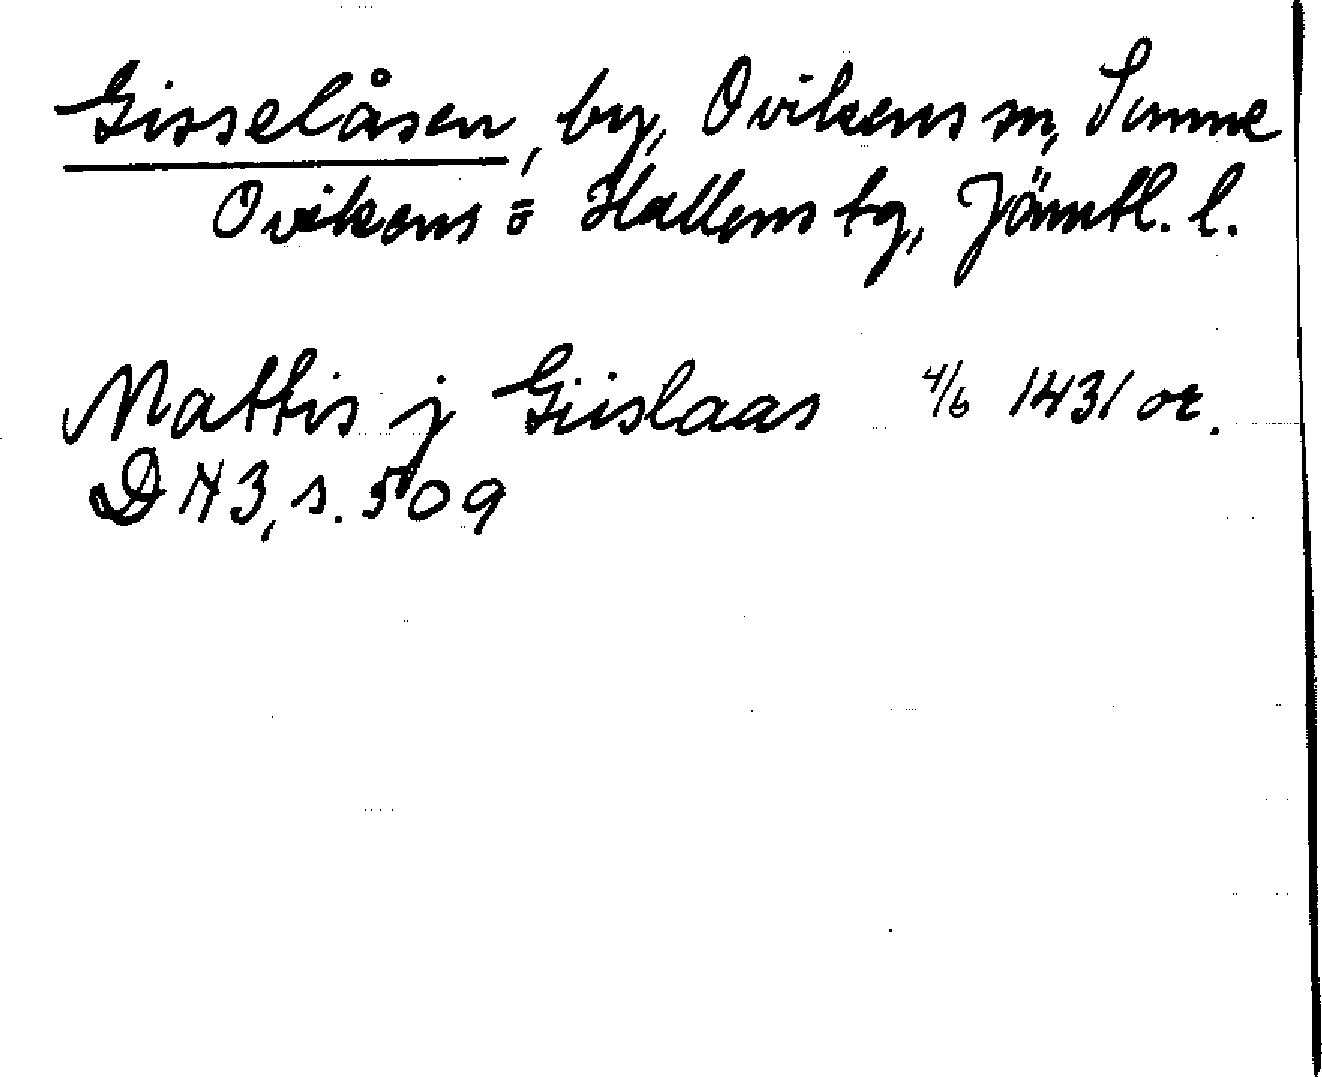 Gisselåsen, by, Ovikens sn, Sunne
Ovikens o Hallens tg, Jämtl. l.
Mattis j Giislaas 4/6 1431 or.
DN 3, s. 509